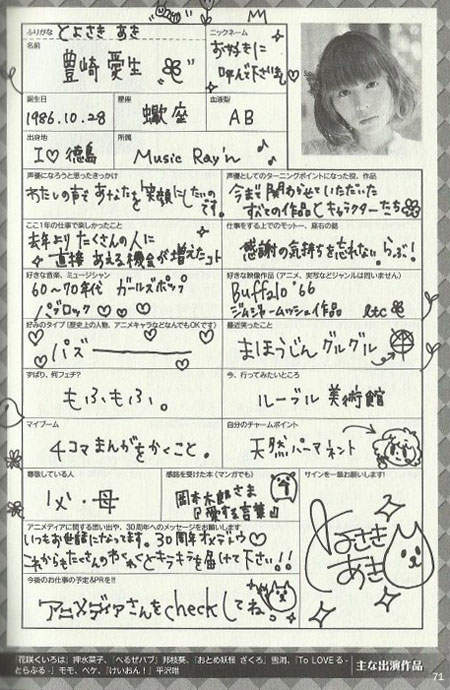 ふりがな とよさき あき
名前
豊崎 愛生
ニックネーム
お好きに
呼んで下さいませ
誕生日
1986.10.28
星座
蠍座
血液型
AB
出身地
I♡徳島
所属
Music Ray'n ♪
声優になろうと思ったきっかけ
わたしの声であなたを笑顔にしたいの
です。
声優としてのターニングポイントになった役、作品
今まで関わらせていただいた
すべての作品とキャラクターたち
ここ1年の仕事で楽しかったこと
去年よりたくさんの人に
直接あえる機会が増えたコト
仕事をする上でのモットー、座右の銘
感謝の気持ちを忘れない。らぶ!
好きな音楽、ミュージシャン
60〜70年代 ガールズポップ
パブロック♡♡♡
好きな映像作品(アニメ、実写などジャンルは問いません)
Buffalo '66
ジム・ジャームッシュ作品 etc
好みのタイプ(歴史上の人物、アニメキャラなどなんでもOKです)
パズー
最近笑ったこと
まほうじんグルグル
ずばり、何フェチ?
もふもふ。
今、行ってみたいところ
ルーブル美術館
マイブーム
4コマまんがをかくこと。
自分のチャームポイント
天然パーマネント
尊敬している人
父・母
感銘を受けた本(マンガでも)
岡本太郎さま
『愛する言葉』
サインを一筆お願いします!
とよさき
あき
アニメディアに関する思い出や、30周年へのメッセージをお願いします
いつもお世話になってます。30周年オメデトウ♡
これからもたくさんのわくわくとキラキラを届けて下さい!!
今後のお仕事の予定&PRを!!
アニメディアさんをcheckしてね。
『花咲くいろは』押水菜子、『べるぜバブ』邦枝葵、『おとめ妖怪 ざくろ』雪洞、『To LOVEる-
とらぶる-』モモ、ペケ、『けいおん!』平沢唯
主な出演作品
71